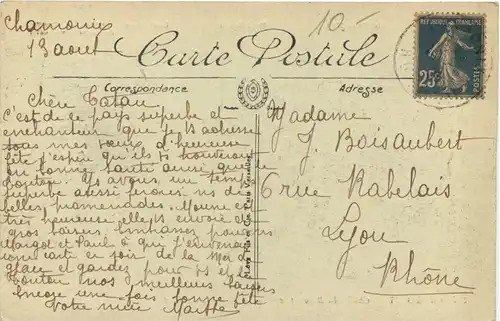 Chamonix
13 août
10.-
Carte Postale
RÉPUBLIQUE FRANÇAISE
25c
POSTES
Correspondance
Adresse
Chère Tatan
C'est de ce pays superbe et
enchanteur que je t'adresse
tous mes vœux d'heureuse
fête j'espère qu'ils te trouveront
en bonne santé ainsi que
Tonton. Ns avons un temps
superbe aussi ferons ns de
belles promenades. Moune est
très heureuse elle t'envoie de
gros baisers. Embrassez pour nous
Margot et Paul à qui j'enverrai
une carte en soir de la Mer de
glace et gardez pour vs et
Tonton nos meilleurs baisers
Encore une fois bonne fête
Votre nièce Marthe
Madame
J. Boisaubert
6 rue Rabelais
Lyon
Rhône